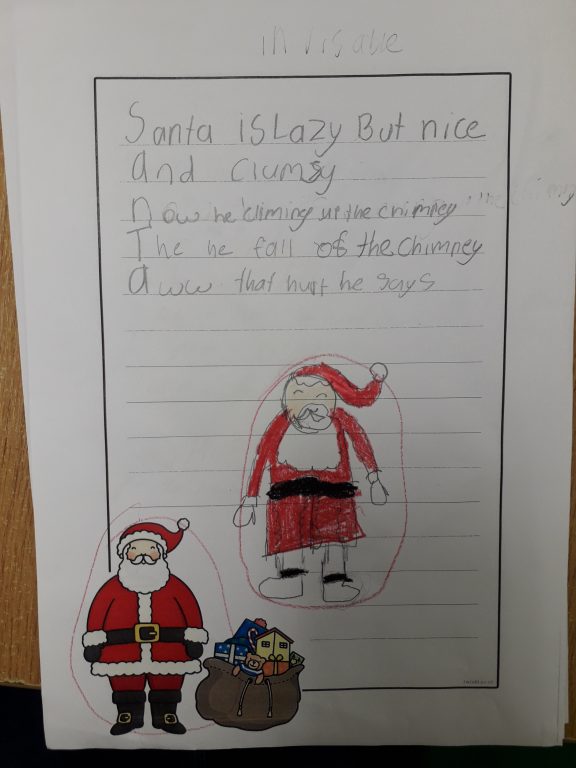 invisable
Santa is Lazy But nice
and clumsy
now he climing up the chimney
The he fall of the chimney
aww that hurt he says